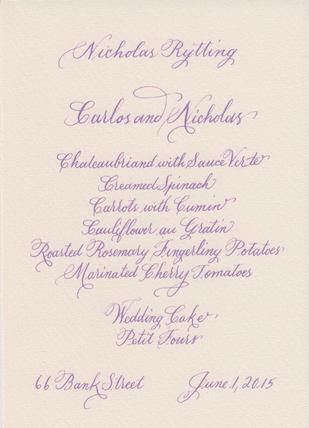 Nicholas Rytting
Carlos and Nicholas
Chateaubriand with Sauce Verte
Creamed Spinach
Carrots with Cumin
Cauliflower au Gratin
Roasted Rosemary Fingerling Potatoes
Marinated Cherry Tomatoes
Wedding Cake
Petit Fours
66 Bank Street June 1, 2015